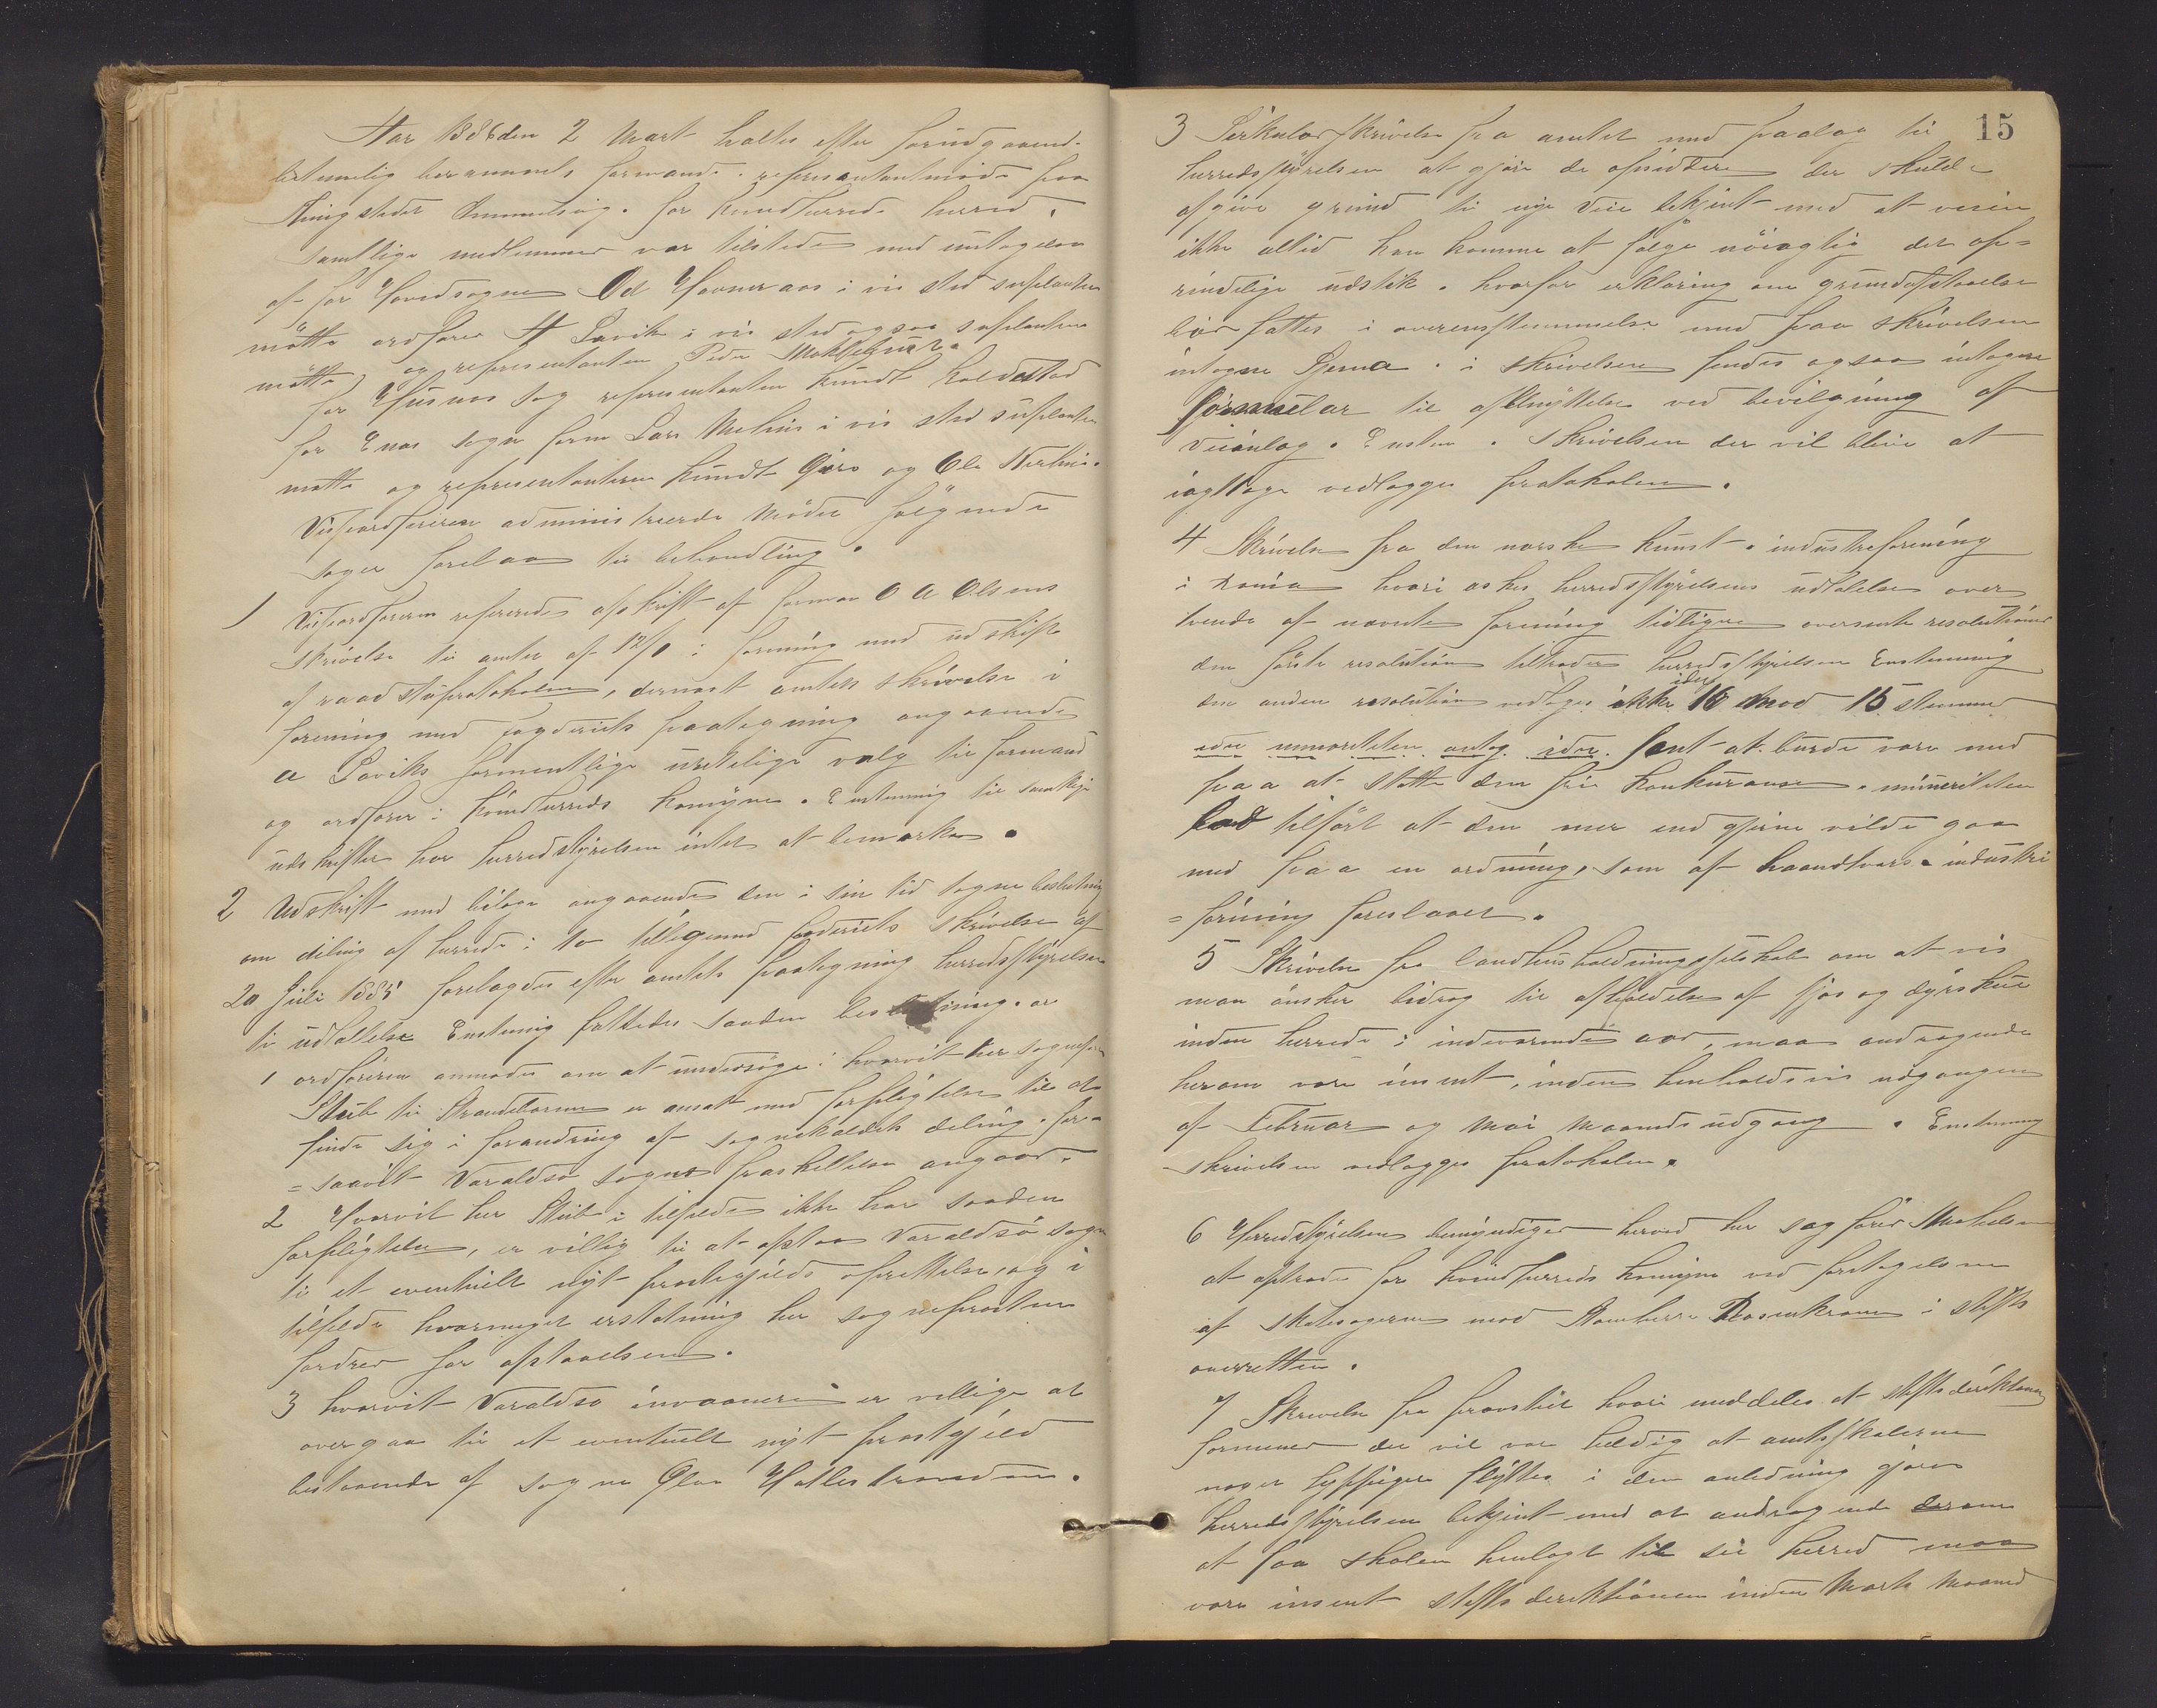 Aar 1886 den 2 Mart holtes efter forudgaaend-
betimelig berammels formands. representantmøde paa
Thingstedet Ommelsvig. for kvindherreds herred.
samtlige medlemmer var tilstede med untagelse
af for Hovedsognen Od Hovneraas i vis sted suplanten
mötte ordförer A Lavik i vis sted ogsaa suplanten
mötte, og representanten Peder
for Husnes sog representanten Knudt Holdestad
for Enæs sogn form Lars Melius i vis sted suplanten
mötte og representanterne Knudt Gjero og Ole
Viseordföreren administrerede Mödet fölgende
sager forelaa til behandling.
1 Viseordföreren refererede afskrift af forman O A Olsens
skrivelse til amtet af 12/1 i forening med udskift
af raadstuprotokolen, dernæst amtets skrivelse i
forening med fogderiets paategning angaaende
A Laviks formentlige uretelige valg til formand
og ordförer i kvindherreds komüne. Enstemmig til samtlige
udskrifter har herredstyrelsen intet at bemærke.
2 Udskrift med bilage angaaende den i sin tid tagne beslutning
om deling af herredet i to tilligemed fogderiets skrivelse af
20 Juli 1885 forelagdes efter amtets paategning herredsstyrelsen
til udtallelse Enstemig fattedes saaden beslutning. at
1 ordföreren anmodes om at undersöge i hvorvit her sognepræst
Stub til Strandebarm er ansat med forpligtelse til at
finde sig i forandring af sognekaldets deling. for-
= saavit Varaldsö sogns fraskillelse angaar.
2 Hvorvit her Stub i tilfelde ikke har saaden
forpligtelse, er villig til at afstaa Varaldsö sogn
til et eventuelt nyt prestegjelds oprettelse, og i
tilfelde hvormeget erstatning her sognepresten
fordrer for afstaaelsen.
3 hvorvit Varaldsö invaanere er vellige at
overgaa til et eventuelt nyt prestgjeld
bestaaende af sogne Ølve Hatlestrandm.
15
3 Sirkulærskrivelse fra amtet med paalag til
herredsstyrelsen at gjöre de opsiddere der skulde
afgive grund til nye Veie bekjent med at veien
ikke altid kan komme at fölge nöiagtig det op-
rindelige udstik. hvorfor erklæring om grundafstaaelse
bör fattes i overensstemmelse med paa skrivelsen
intagne Sjema. i skrivelsen findes ogsaa intagne
formular til afbenyttelse ved bevilgning af
Veianlæg. Enstem. Skrivelsen der vil blive at
iagttage vedlægges protokolen.
4 Skrivelse fra den norske kunst. industreforening
i xania hvori askes herredsstyrelsens udtalelse over
tvende af nævnte forening tidligere oversente resolutioner
den förste resolution tiltræder herredsstyrelsen Enstemmig
den anden resolution vedtoges ikke idet 16 Mod 15 stemmer
idet minoriteten antog idet fant at burde være med
paa at stötte den frie konkurance. minneriteten
lod tilfört at den mer end gjerne vilde gaa
med paa en ordning, som af haandværs. industri
= förining foreslaaet.
5 Skrivelse fra landhusholdningsselskab om at vis
man önsker bidrag til afholdelse af fjös og dyrskue
inden herredet i indeværende aar, maa andragende
herom være insent, inden henholdsvis udgangen
af Februar og Mai Maaneds udgang. Enstemmig
skrivelsen vedlægges protokolen.
6 Herredstyrelsen bemyndiger herved her sagförer
at optræde for kvindherreds komüne ved foretagelsen
af skatesagerne mod Stamherre Rosenkrone i stifts
overretten.
7 Skrivelse fra provstiet hvori meddeles at stiftsdirektionen
formener det vil være heldig at amtsskolerne
noget hyppigere flyttes i den anledning gjöres
herredsstyrelsen bekjent med at andragende derom
at faa skolen henlagt til sit herred maa
være insent stiftsderektionen inden Marts Maaned